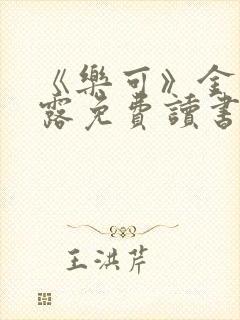 《樂可》金
露免費讀書
王洪芹